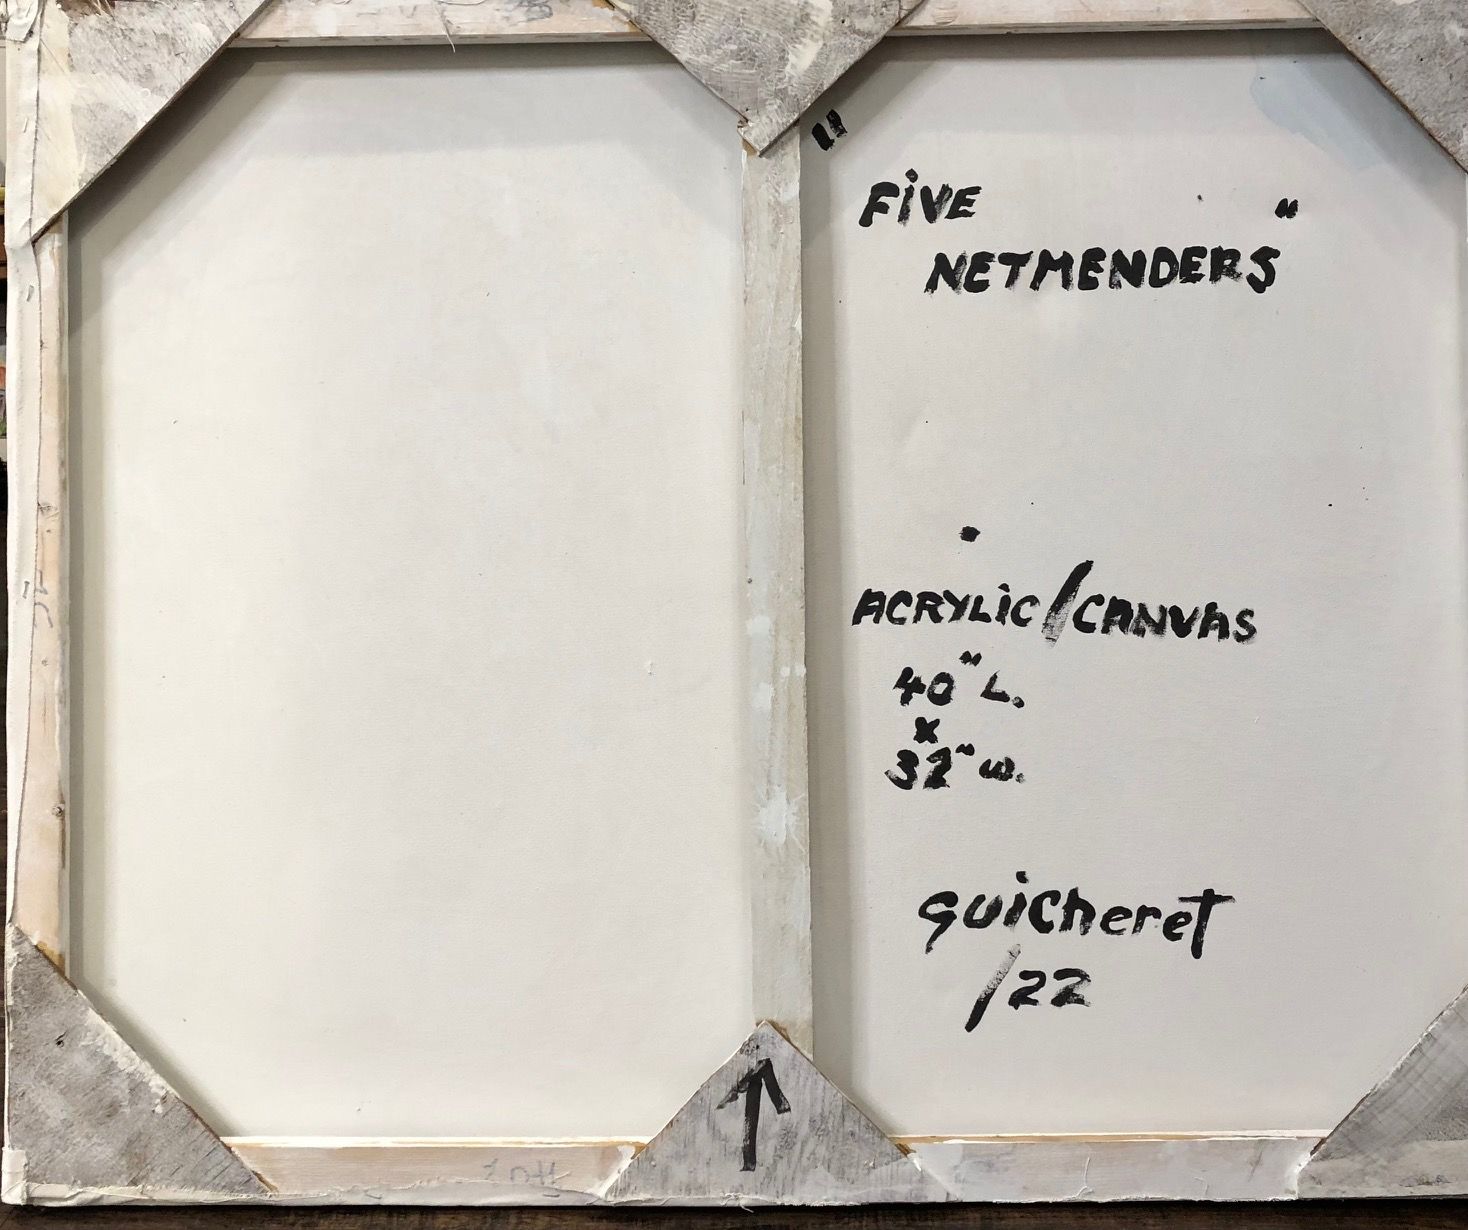 "
FiVE "
NETMENDERS
ACRYLiC/CANVAS
40" L.
x
32" W.
guicheret
/22